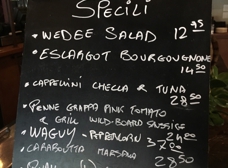 SPECILI
• WEDEE SALAD 12.95
• ESCLARGOT BOURGOUGNONE
14.50
• CAPPELLINI CHECCA & TUNA
28.50
• PENNE GRAPPA PINK TOMATO
& GRILL WILD-BOARD SAUSAGE
24.00
• WAGUY - PEPERCORN 37.00
• CARABOTTA MARSALA
28.50